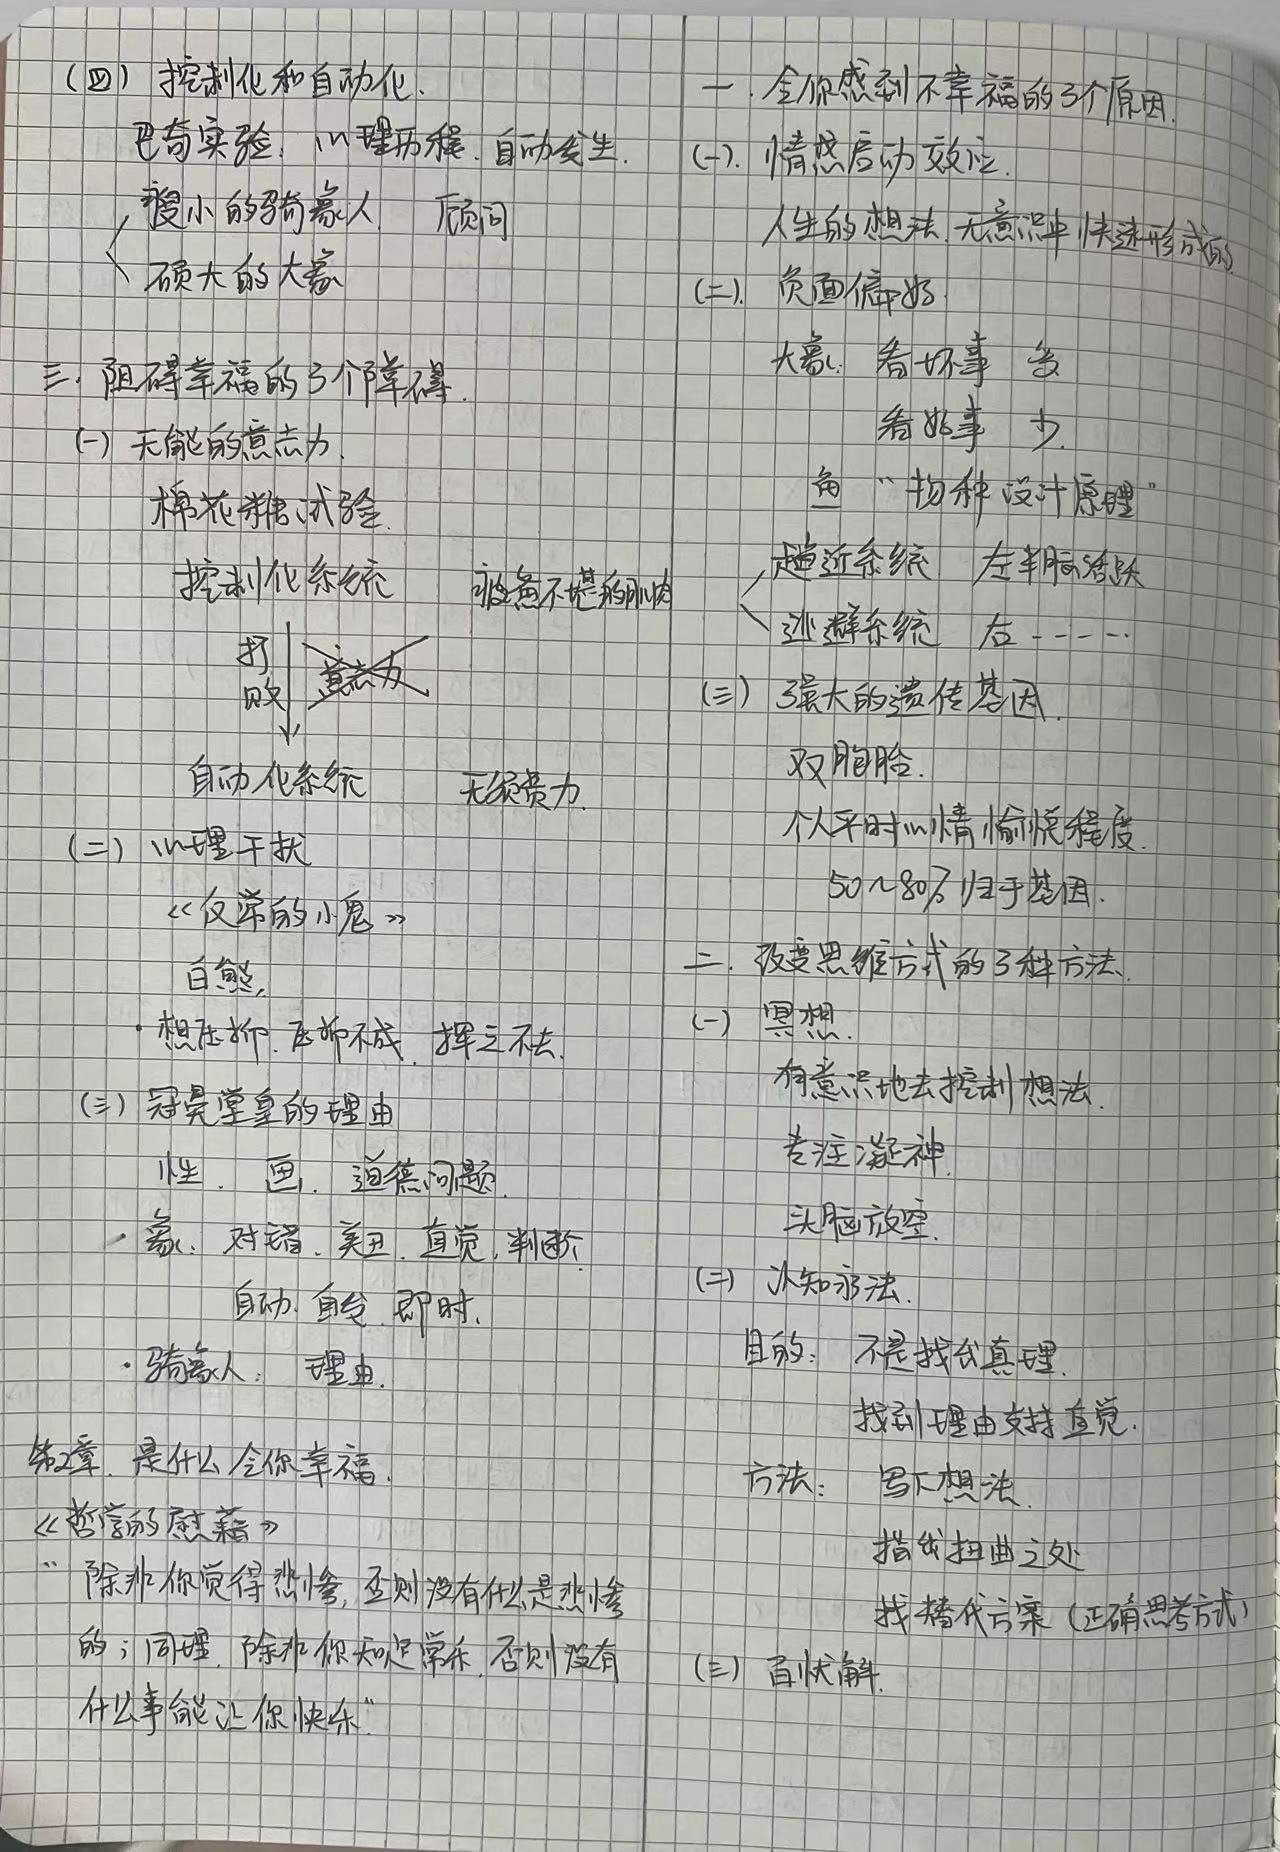 (四) 控制化和自动化.
巴奇实验: 心理历程. 自动发生.
瘦小的骑象人 顾问
硕大的大象
三. 阻碍幸福的3个障碍.
(一) 无能的意志力.
棉花糖试验.
控制化系统 疲惫不堪的肌肉
打败 意志力
自动化系统 无须费力.
(二) 心理干扰
《反常的小鬼》
白熊.
· 想压抑. 压抑不成. 挥之不去.
(三) 冠冕堂皇的理由
性. 画. 道德问题.
· 象: 对错. 美丑. 直觉. 判断.
自动. 自发. 即时.
· 骑象人: 理由.
第2章. 是什么令你幸福.
《哲学的慰藉》
“除非你觉得悲惨, 否则没有什么是悲惨
的; 同理. 除非你知足常乐. 否则没有
什么事能让你快乐”
一. 令你感到不幸福的3个原因.
(一). 情感启动效应.
人生的想法. 无意识中快速形成的
(二). 负面偏好.
大象: 看坏事 多
看好事 少.
鱼 “物种设计原理”
趋近系统 左半脑活跃
逃避系统 右……
(三) 强大的遗传基因.
双胞胎.
个人平时心情愉悦程度.
50~80% 归于基因.
二. 改变思维方式的3种方法.
(一) 冥想.
有意识地去控制想法.
专注凝神.
头脑放空.
(二) 认知疗法.
目的: 不是找出真理.
找到理由支持直觉.
方法: 写下想法.
指出扭曲之处
找替代方案 (正确思考方式)
(三) 百忧解.